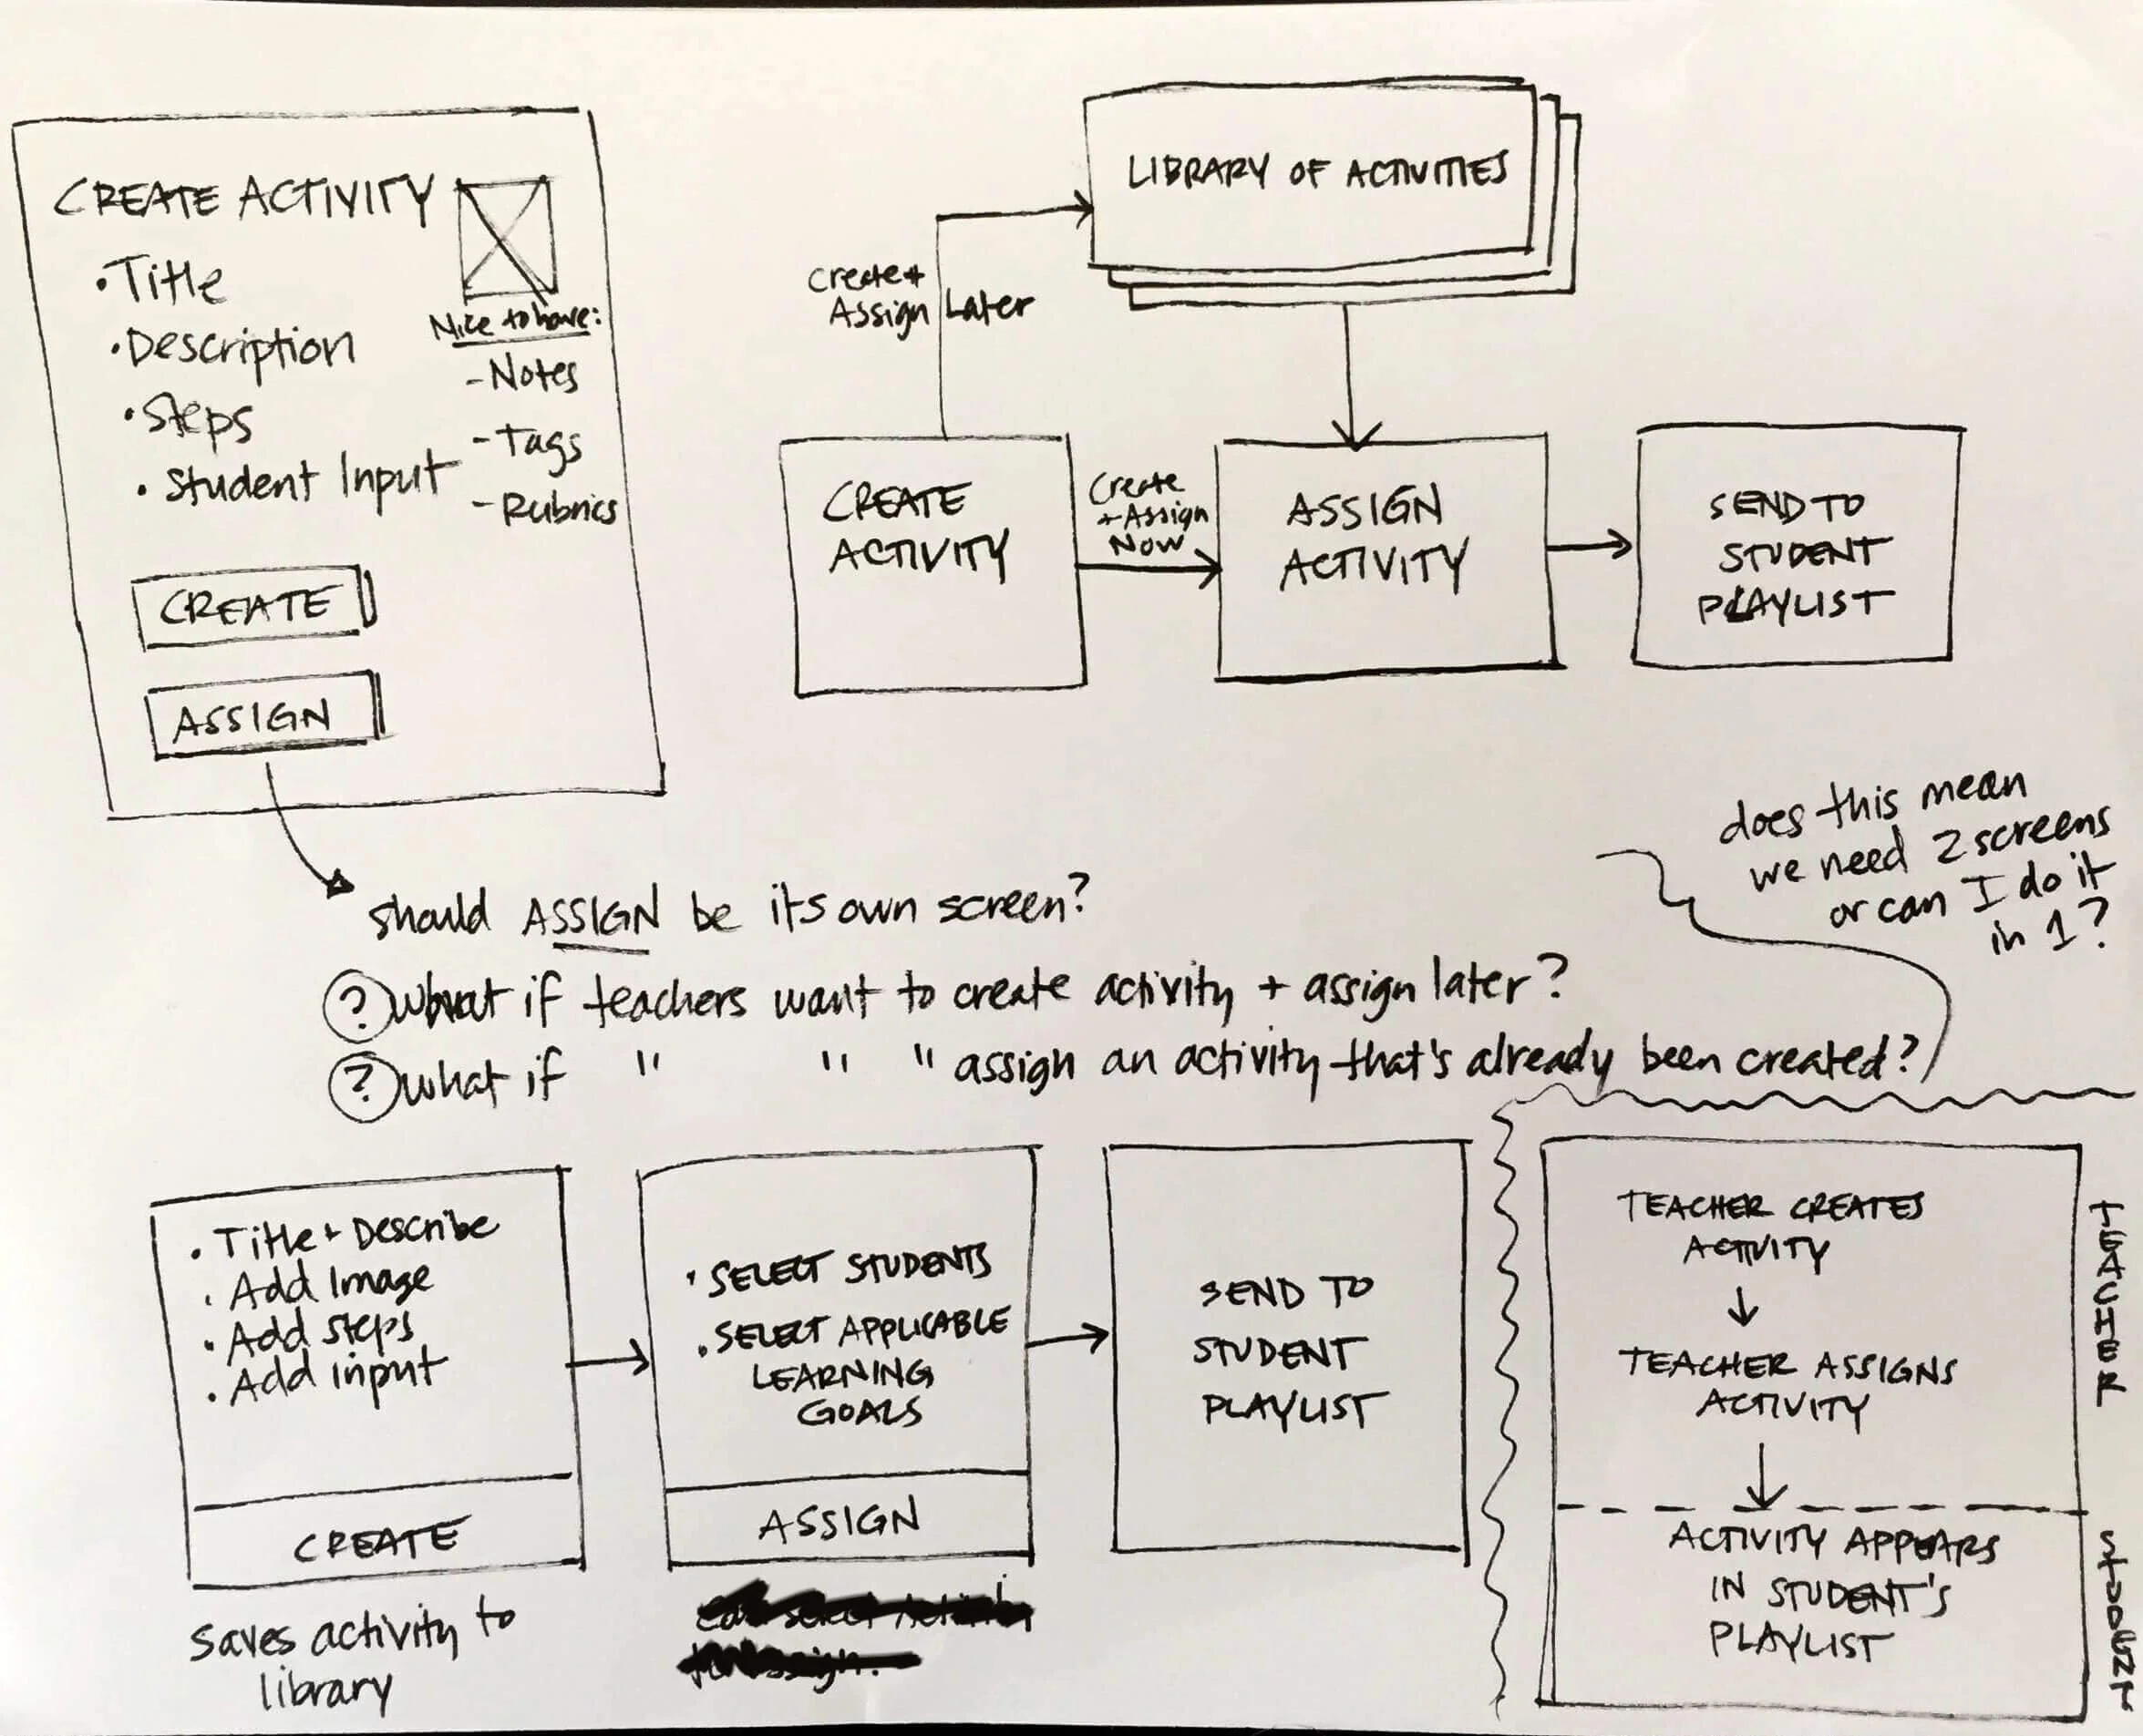 CREATE ACTIVITY
• Title
• Description
• Steps
• Student Input
Nice to have:
- Notes
- Tags
- Rubrics
CREATE
ASSIGN
LIBRARY OF ACTIVITIES
Create +
Assign Later
CREATE
ACTIVITY
Create
+ Assign
Now
ASSIGN
ACTIVITY
SEND TO
STUDENT
PLAYLIST
does this mean
we need 2 screens
or can I do it
in 1?
should ASSIGN be its own screen?
? What if teachers want to create activity + assign later?
? what if " " " assign an activity that's already been created?
• Title + Describe
• Add Image
• Add steps
• Add input
CREATE
saves activity to
library
• SELECT STUDENTS
• SELECT APPLICABLE
LEARNING
GOALS
ASSIGN
select
SEND TO
STUDENT
PLAYLIST
TEACHER CREATES
ACTIVITY
TEACHER ASSIGNS
ACTIVITY
TEACHER
ACTIVITY APPEARS
IN STUDENT'S
PLAYLIST
STUDENT